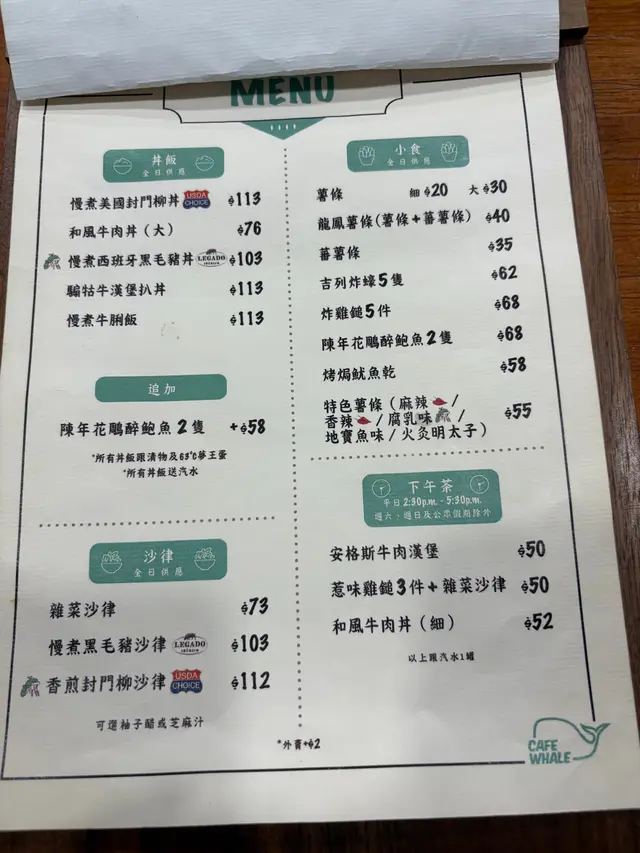 MENU
丼飯
全日供應
慢煮美國封門柳丼 USDA CHOICE $113
和風牛肉丼（大） $76
慢煮西班牙黑毛豬丼 LEGADO IBÉRICO $103
騸牯牛漢堡扒丼 $113
慢煮牛脷飯 $113
追加
陳年花鵰醉鮑魚2隻 +$58
*所有丼飯跟漬物及63°C夢王蛋
*所有丼飯送汽水
沙律
全日供應
雜菜沙律 $73
慢煮黑毛豬沙律 LEGADO IBÉRICO $103
香煎封門柳沙律 USDA CHOICE $112
可選柚子醋或芝麻汁
小食
全日供應
薯條 細 $20 大 $30
龍鳳薯條(薯條+蕃薯條) $40
蕃薯條 $35
吉列炸蠔5隻 $62
炸雞鎚5件 $68
陳年花鵰醉鮑魚2隻 $68
烤焗魷魚乾 $58
特色薯條（麻辣/
香辣/腐乳味/
地寶魚味/火灸明太子） $55
下午茶
平日2:30p.m. - 5:30p.m.
週六、週日及公眾假期除外
安格斯牛肉漢堡 $50
惹味雞鎚3件+雜菜沙律 $50
和風牛肉丼（細） $52
以上跟汽水1罐
*外賣+$2
CAFE
WHALE